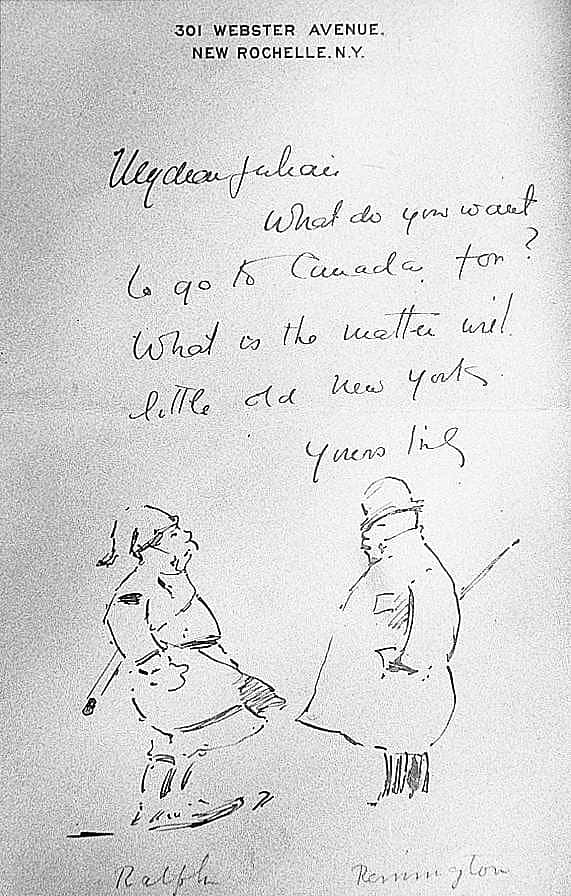 301 WEBSTER AVENUE.
NEW ROCHELLE. N.Y.
My dear Julian
What do you want
to go to Canada for?
What is the matter with
little old New York
Yours
Ralph
Remington